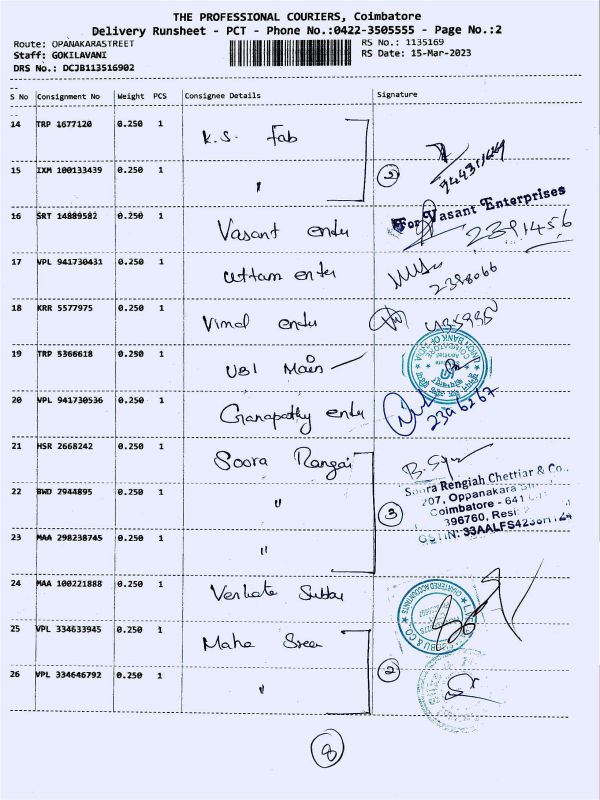 THE PROFESSIONAL COURIERS, Coimbatore
Delivery Runsheet - PCT - Phone No.:0422-3505555 - Page No.:2
Route: OPANAKARASTREET
RS No.: 1135169
Staff: GOKILAVANI
RS Date: 15-Mar-2023
DRS No.: DCJB113516902
S No Consignment No Weight PCS Consignee Details Signature
14 TRP 1677120 0.250 1 K.S. Fab
15 IXM 100133439 0.250 1 " 2
For Vasant Enterprises
16 SRT 14889582 0.250 1 Vasant enter 2391456
17 VPL 941730431 0.250 1 Uttam enter 2398066
18 KRR 5577975 0.250 1 Vimal enter
19 TRP 5366618 0.250 1 UBI Main
20 VPL 941730536 0.250 1 Ganapathy enter 2396267
21 HSR 2668242 0.250 1 Soora Rangai
Soora Rengiah Chettiar & Co.,
207, Oppanakara
22 BWD 2944895 0.250 1 " 3
Coimbatore - 641
396760, Resi:
23 MAA 298238745 0.250 1 "
GSTIN: 33AALFS4236H1Z4
24 MAA 100221888 0.250 1 Venkata Subbu
CHARTERED ACCOUNTANTS
25 VPL 334633945 0.250 1 Maha Sree
26 VPL 334646792 0.250 1 " 2
8